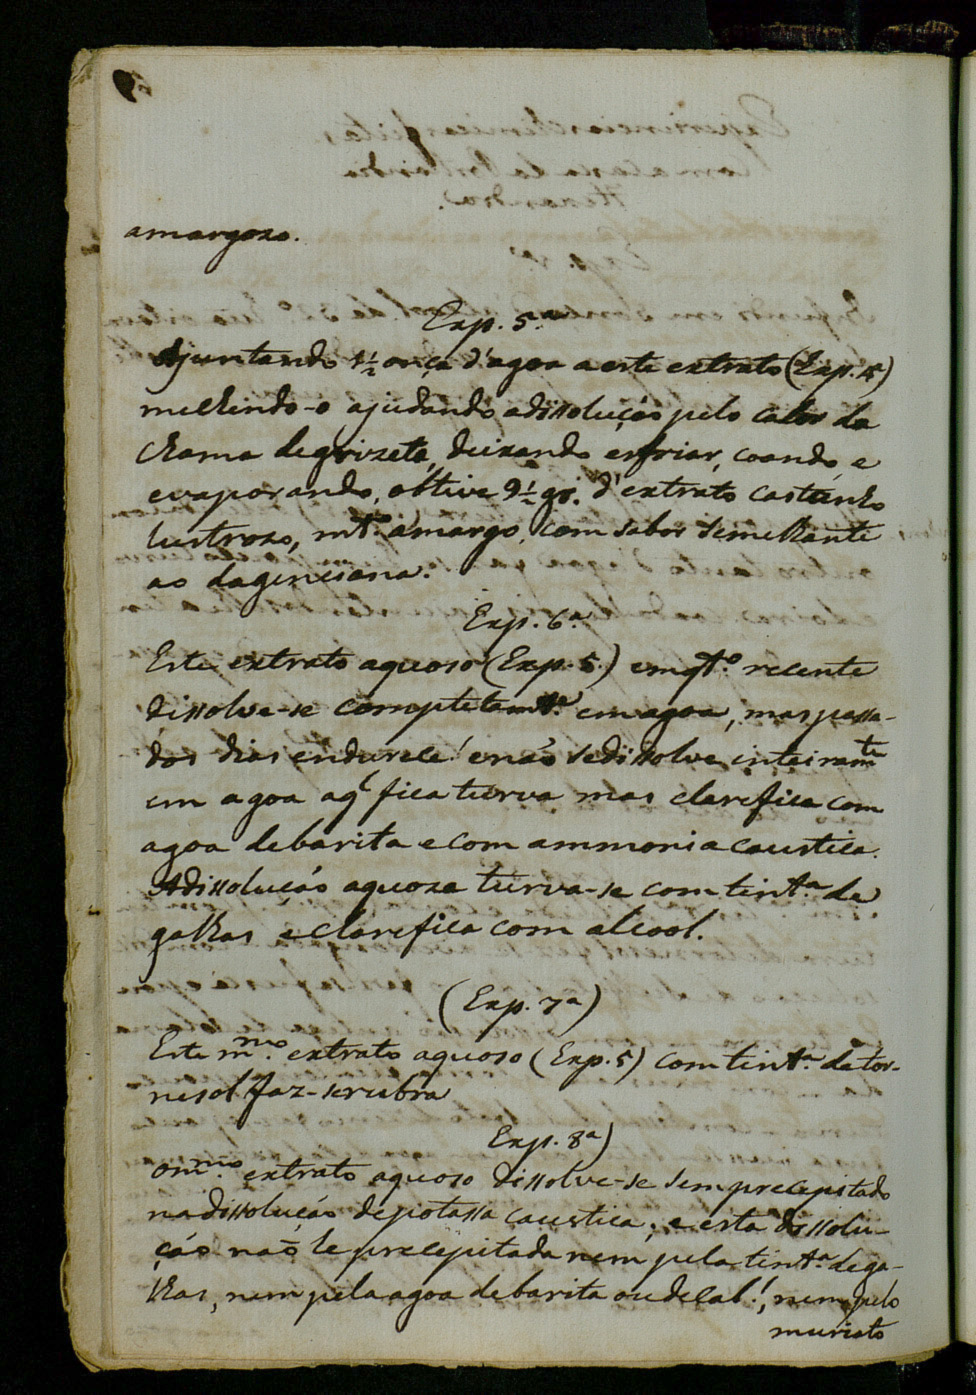 amargozo.
Exp. 5ª
Ajuntando 1½ onça d'agoa a este extrato (Exp. 4)
mechendo-o ajudando adissolução pelo calor da
chama degrizeta, deixando esfriar, coando e
evaporando, obtive 9½ gr. d'extrato castanho
lustrozo, mtº amargo, com sabor semelhante
ao dagenciana.
Exp. 6ª
Este extrato aquoso (Exp. 5.) emqtº recente
dissolve-se completamte em agoa, mas passa-
dos dias endurece! enaõ sedissolve inteiramte
em agoa aql fica turva mas clarefica com
agoa debarita ecom ammonia caustica.
Adissoluçaõ aquoza turva-se com tintª de
galhas e clarefica com alcool.
(Exp. 7ª)
Este mmo extrato aquoso (Exp. 5) com tintª de tor-
nesol faz-se rubra
Exp. 8ª)
ommo extrato aquoso dissolve-se sem precepitado
nadissoluçaõ depotassa caustica; e esta dissolu-
çaõ naõ he precepitada nem pela tintª dega-
lhas, nem pela agoa debarita oudecal!, nem pelo
muriato